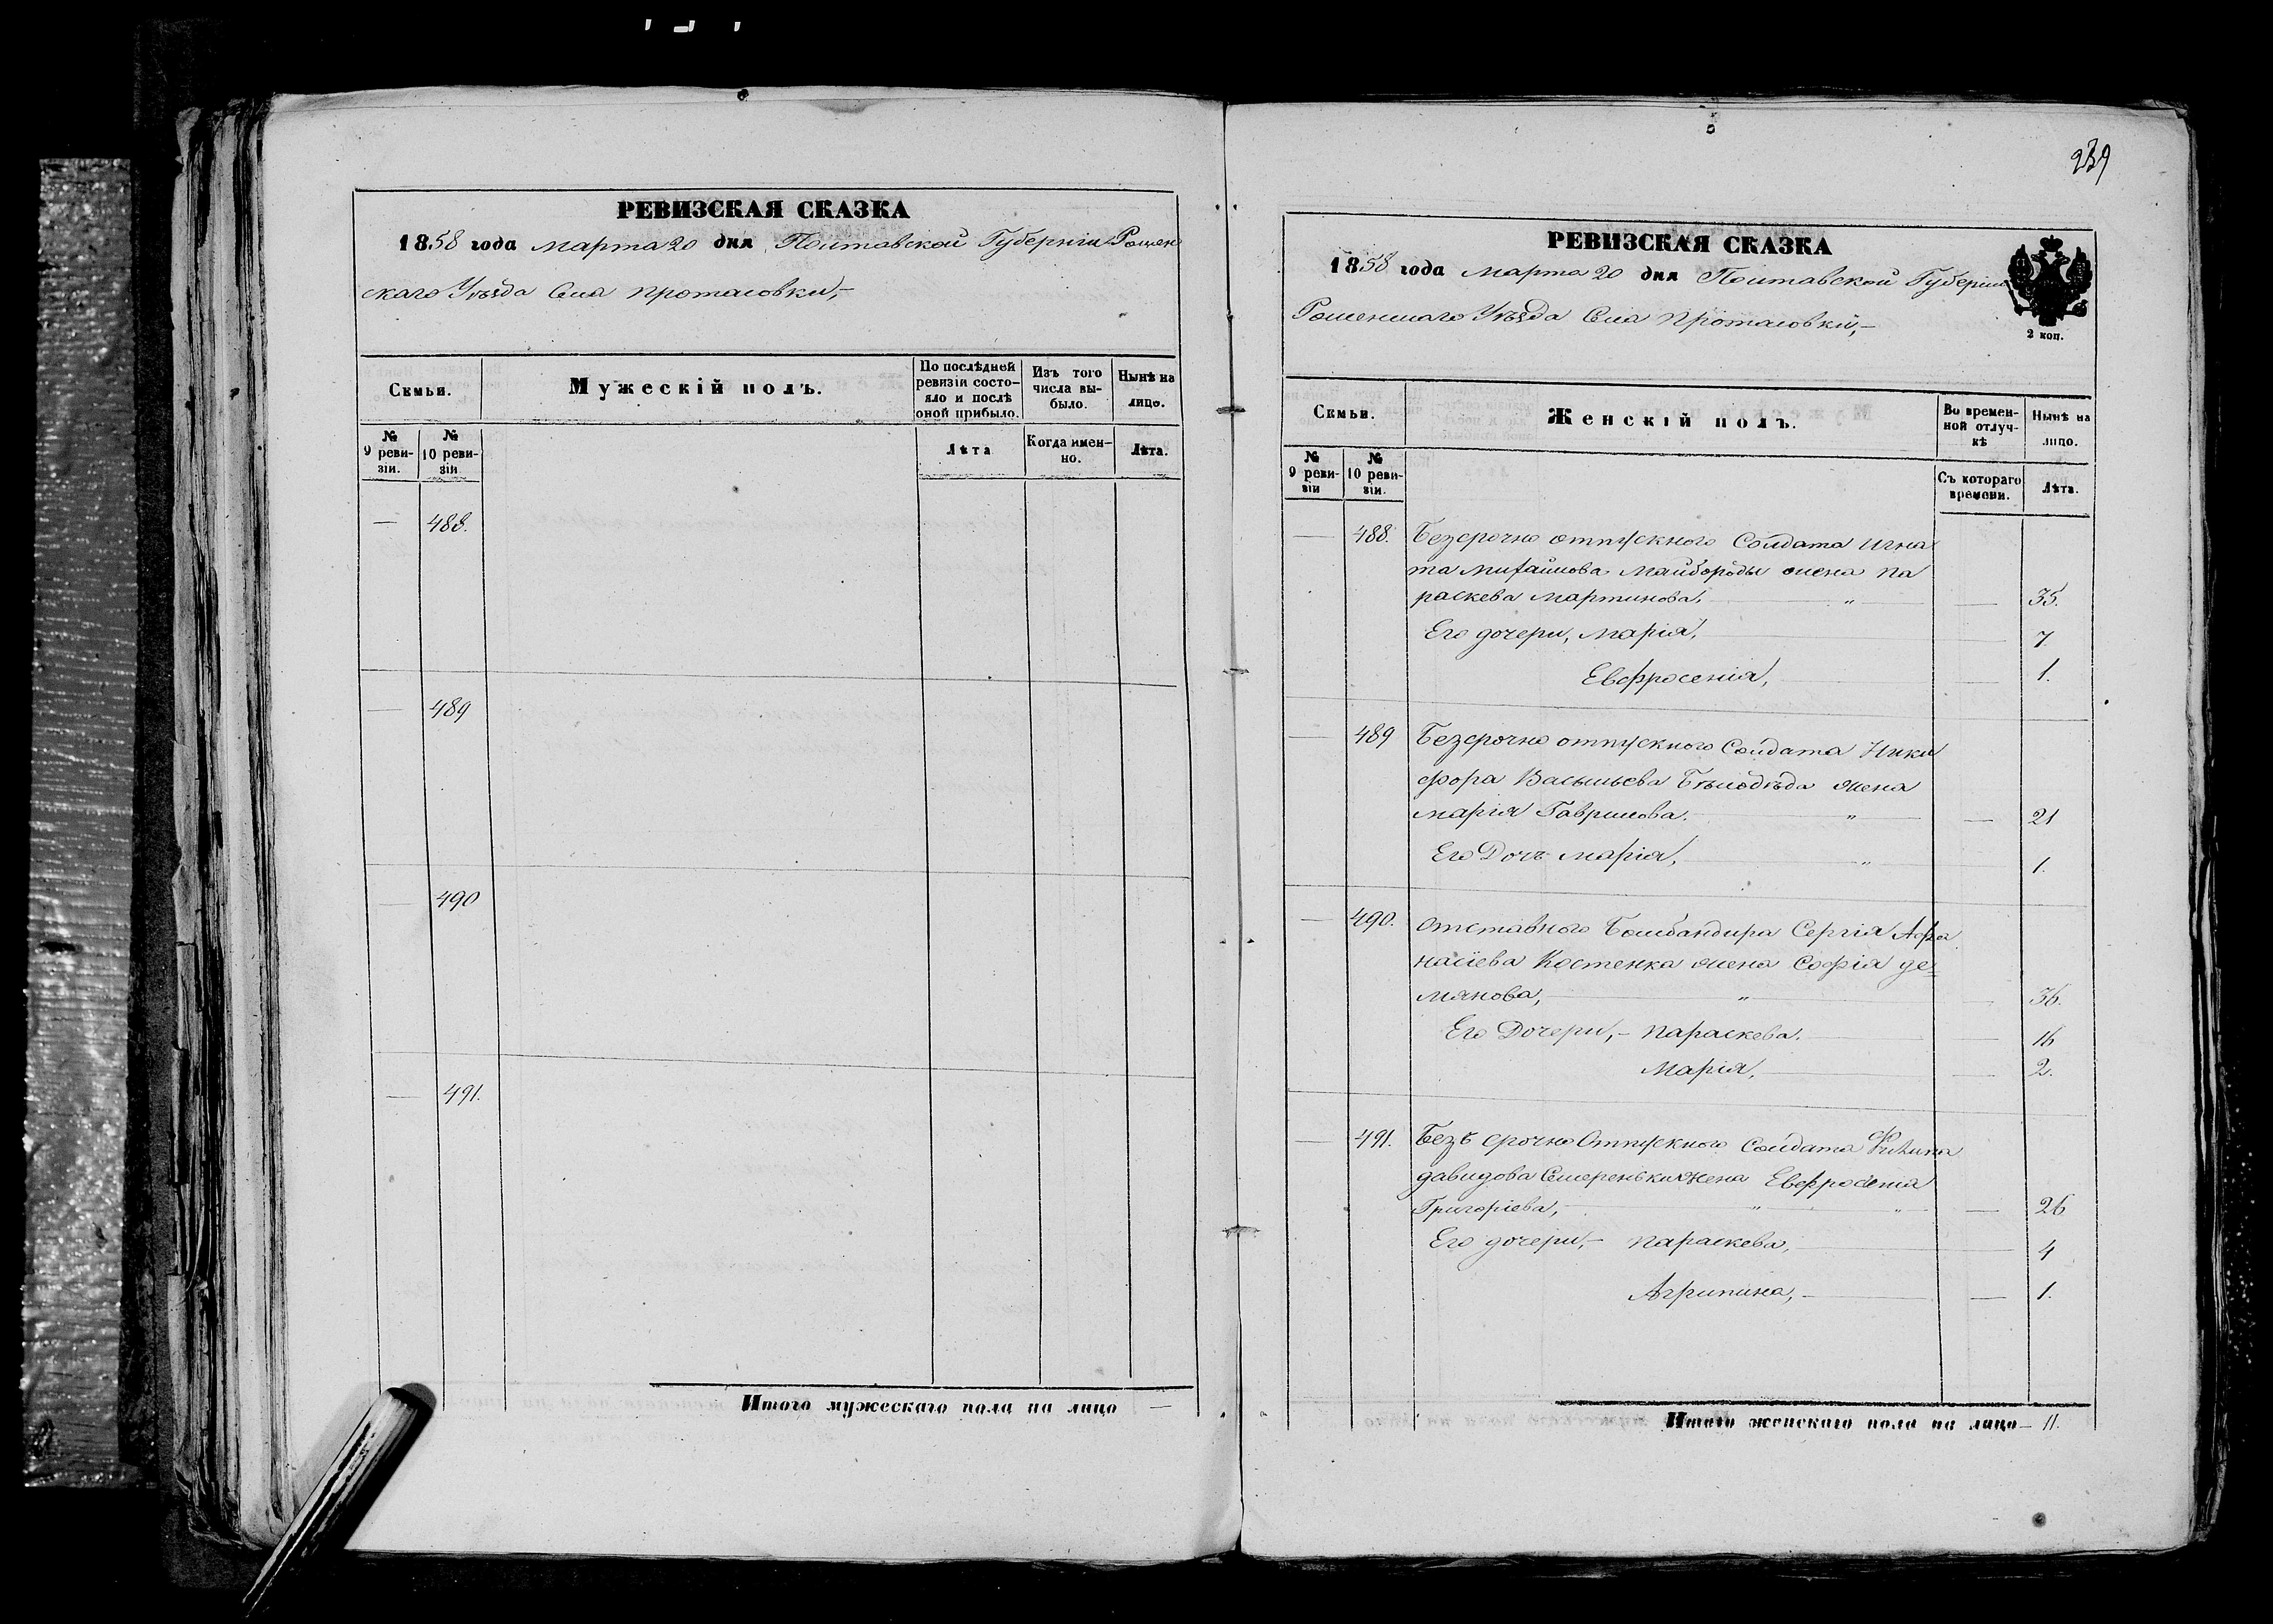 РЕВИЗСКАЯ СКАЗКА
1858 года марта 20 дня Полтавской Губерніи Ромен
скаго Уѣзда Села Протасовки,
Семьи.
Мужескій полъ.
По послѣдней ревизіи состояло и послѣ оной прибыло.
Изъ того числа выбыло.
Нынѣ на лицо.
№ 9 ревизіи.
№ 10 ревизіи
Лѣта
Когда именно.
Лѣта.
— 488.
— 489
— 490
— 491.
Итого мужескаго пола на лицо —
239
РЕВИЗСКАЯ СКАЗКА
1858 года марта 20 дня Полтавской Губеріи
Роменскаго Уѣзда Села Протасовки,
2 коп.
Семьи.
Женскій полъ.
Во временной отлучкѣ
Нынѣ на лицо.
№ 9 ревизіи
№ 10 ревизіи.
Съ котораго времени.
Лѣта.
— 488. Безсрочно отпускного Солдата Игна
та Михайлова Майбороды жена Па
раскева Мартинова, " — 35.
Его дочери, Марія, — 7
Евфросенія, — 1.
— 489 Безсрочно отпускного Солдата Ники
фора Васильева Бѣлодѣда жена
Марія Гаврилова. " — 21
Его Дочь Марія, " 1.
— 490. Отставного Бомбандира Сергія Афа
насіева Костенка жена Софія Де=
мянова, " — 36.
Его Дочери, — Параскева. — 16
Марія, — 2.
— 491. Безъ срочно Отпускного Солдата
Давидова жена Евфросенія
Григоріева, " " — 26
Его дочери, — Параскева, — 4
Агрипина, — 1.
Итого женскаго пола на лицо — 11.